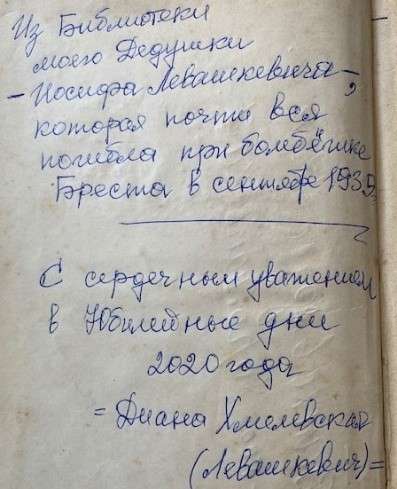 Из Библиотеки
моего Дедушки
- Иосифа Левашкевича -,
которая почти вся
погибла при бомбёжке
Бреста в сентябре 1939.
С сердечным уважением
в Юбилейные дни
2020 года
= Диана Хмелевская
(Левашкевич) =